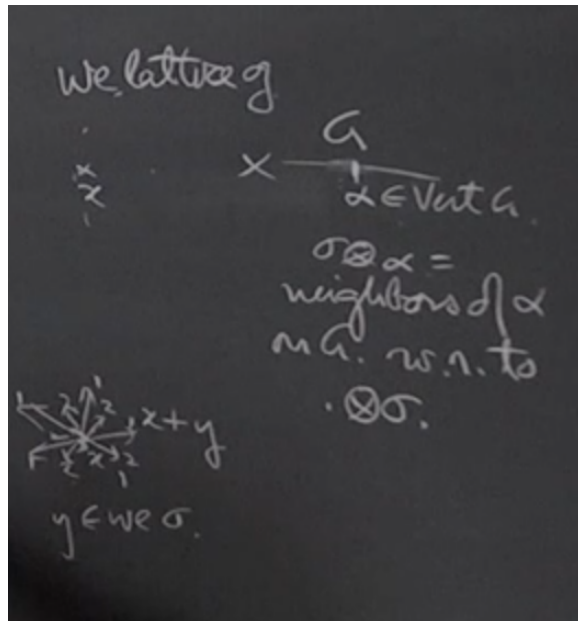 we lattice of
G
x
x
×
α ∈ Vert G.
σ⊗α =
neighbors of α
in G. w.r. to
· ⊗σ.
1
2
2
x+y
2
x
2
1
y ∈ we σ.